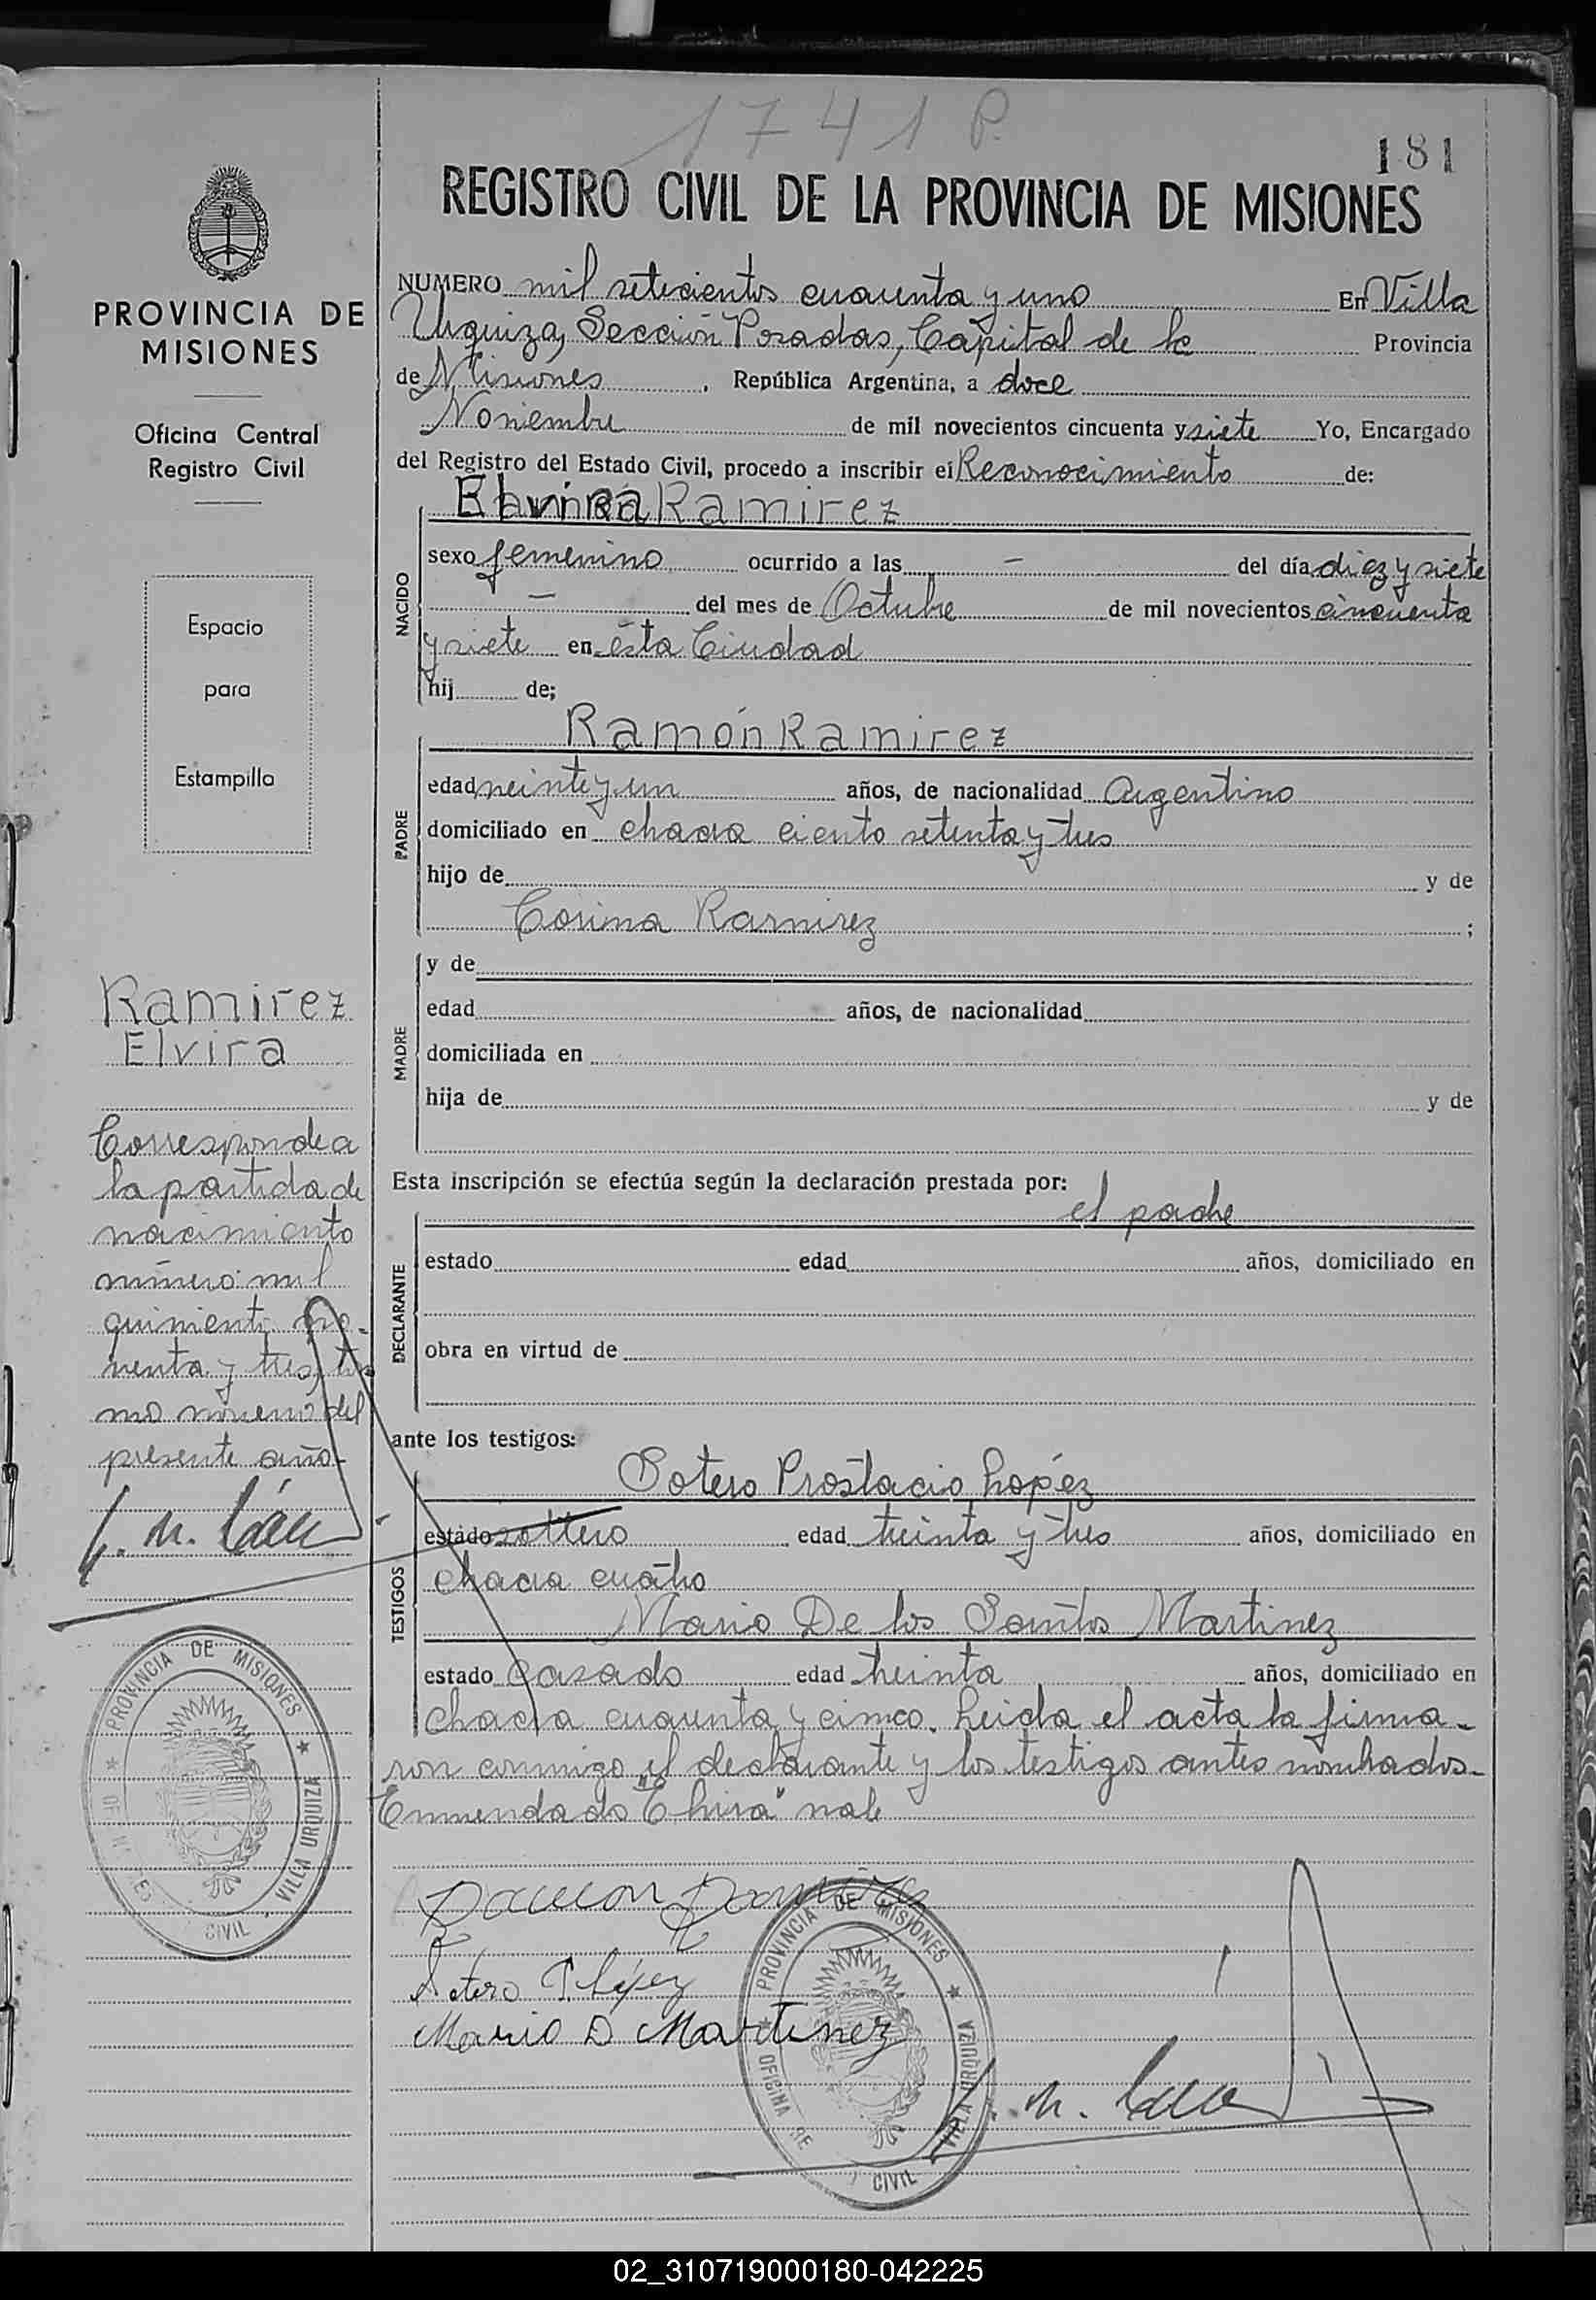 1741 P.
181
REGISTRO CIVIL DE LA PROVINCIA DE MISIONES
PROVINCIA DE
MISIONES
Oficina Central
Registro Civil
Espacio
para
Estampilla
Ramirez
Elvira
Corresponde a
la partida de
nacimiento
número mil
quinientos no-
venta y tres, to-
mo noveno del
presente año
PROVINCIA DE MISIONES
VILLA URQUIZA
CIVIL
NUMERO mil setecientos cuarenta y uno En Villa
Urquiza, Sección Posadas, Capital de la Provincia
de Misiones, República Argentina, a doce
Noviembre de mil novecientos cincuenta y siete Yo, Encargado
del Registro del Estado Civil, procedo a inscribir el Reconocimiento de:
NACIDO
Elvira Ramirez
sexo femenino ocurrido a las — del día diez y siete
— del mes de Octubre de mil novecientos cincuenta
y siete en ésta Ciudad
hij de;
PADRE
Ramón Ramirez
edad veinte y un años, de nacionalidad Argentino
domiciliado en chacra ciento setenta y tres
hijo de y de
Corina Ramirez ;
MADRE
y de
edad años, de nacionalidad
domiciliada en
hija de y de
Esta inscripción se efectúa según la declaración prestada por:
el padre
DECLARANTE
estado edad años, domiciliado en
obra en virtud de
ante los testigos:
TESTIGOS
Sotero Prostacio López
estado soltero edad treinta y tres años, domiciliado en
chacra cuatro
Mario De los Santos Martinez
estado casado edad treinta años, domiciliado en
chacra cuarenta y cinco. Leida el acta la firma-
ron conmigo el declarante y los testigos antes nombrados.
Enmendado "Elvira" vale
Ramon Ramirez
Sotero P. López
Mario D Martinez
PROVINCIA DE MISIONES
VILLA URQUIZA
OFICINA DE
CIVIL
02_310719000180-042225